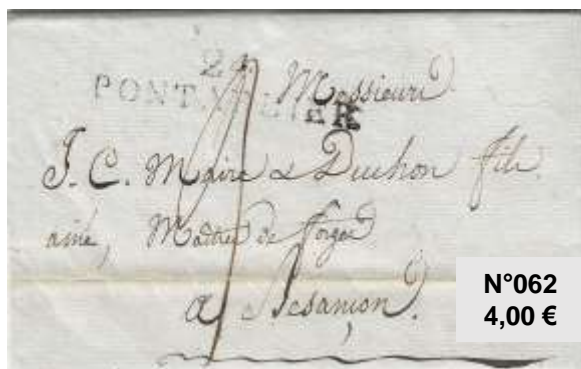 24
PONTARLIER
Messieurs
J. C. Maire & Duchon fils
ainé, Maitre de forges
a Besançon.
N°062
4,00 €